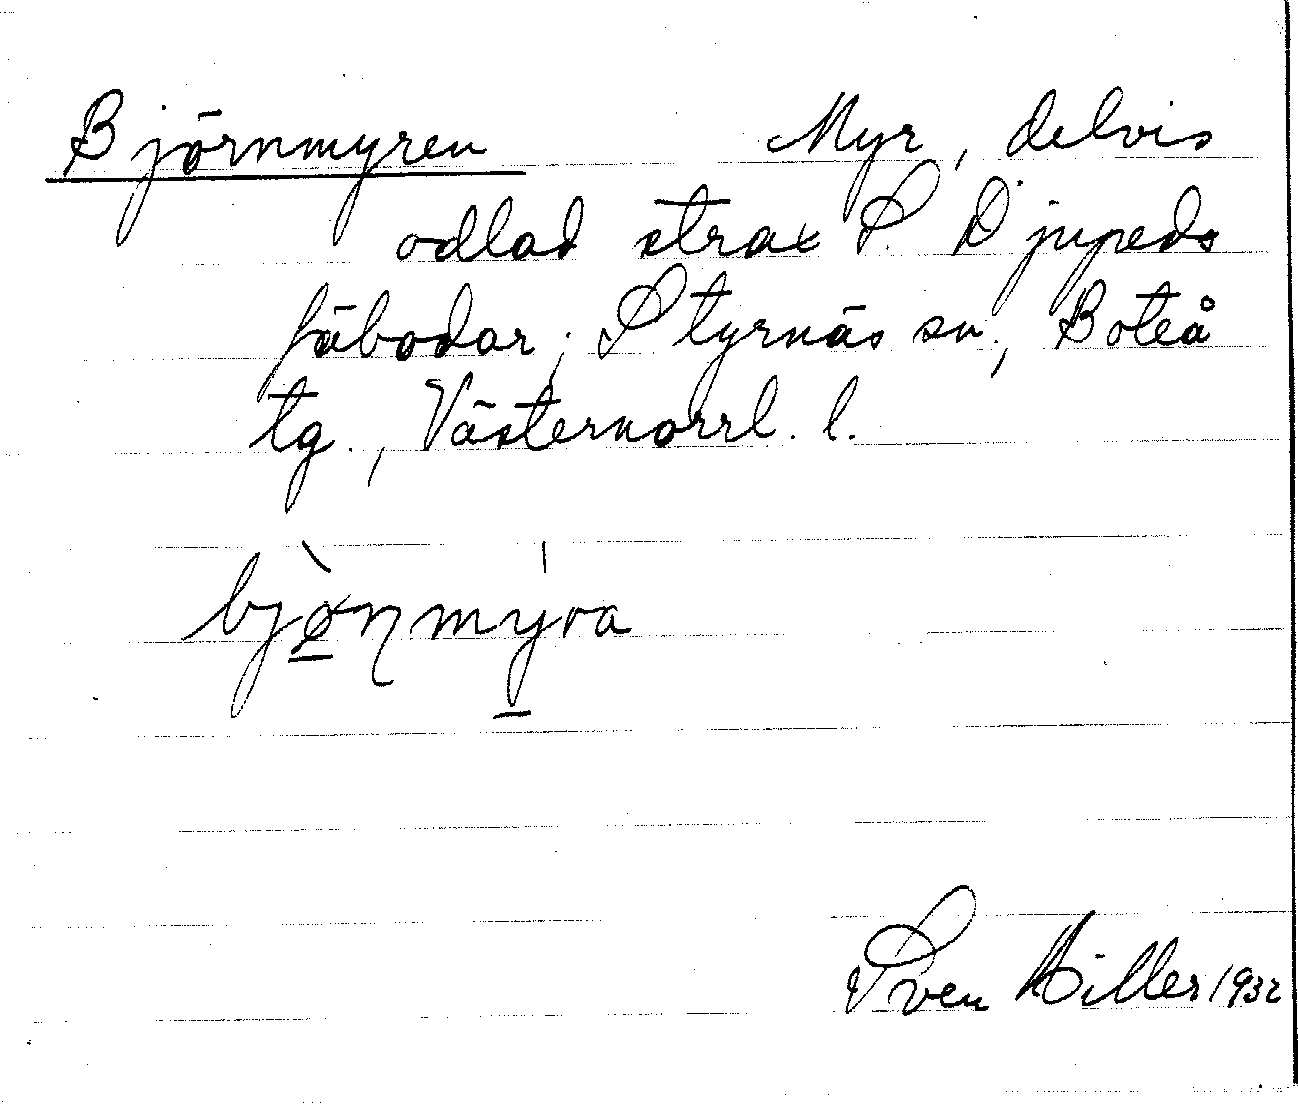 Björnmyren Myr, delvis
odlad strax S. Djupeds
fäbodar; Styrnäs sn., Boteå
tg., Västernorrl. l.
bjø̀nmýra
Sven Hiller 1932